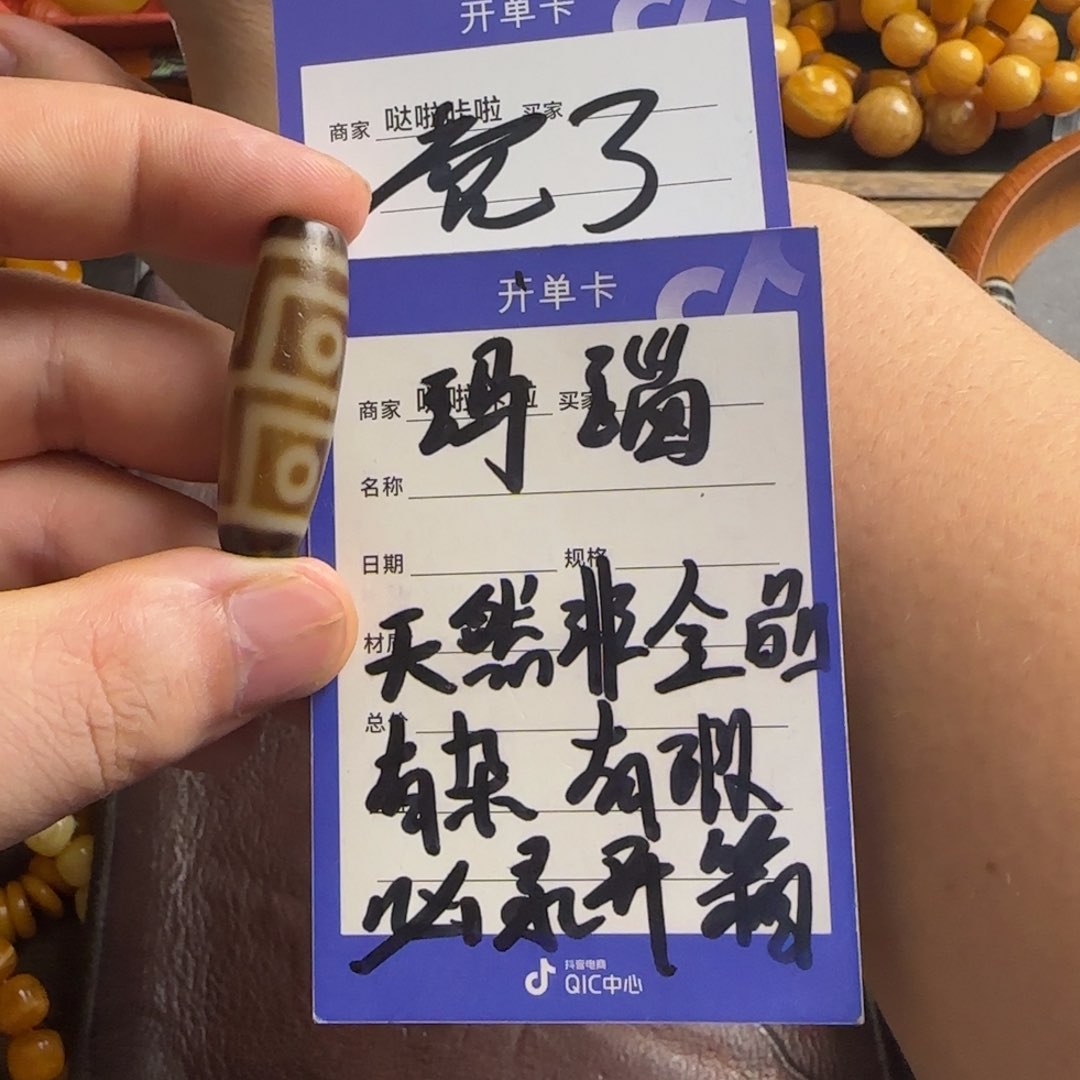 开单卡
商家 哒啦咔啦 买家
了
开单卡
商家 买家
玛瑙
名称
日期 规格
材质
天然非全品
总价
有杂 有瑕
必录开箱
抖音电商
QIC中心